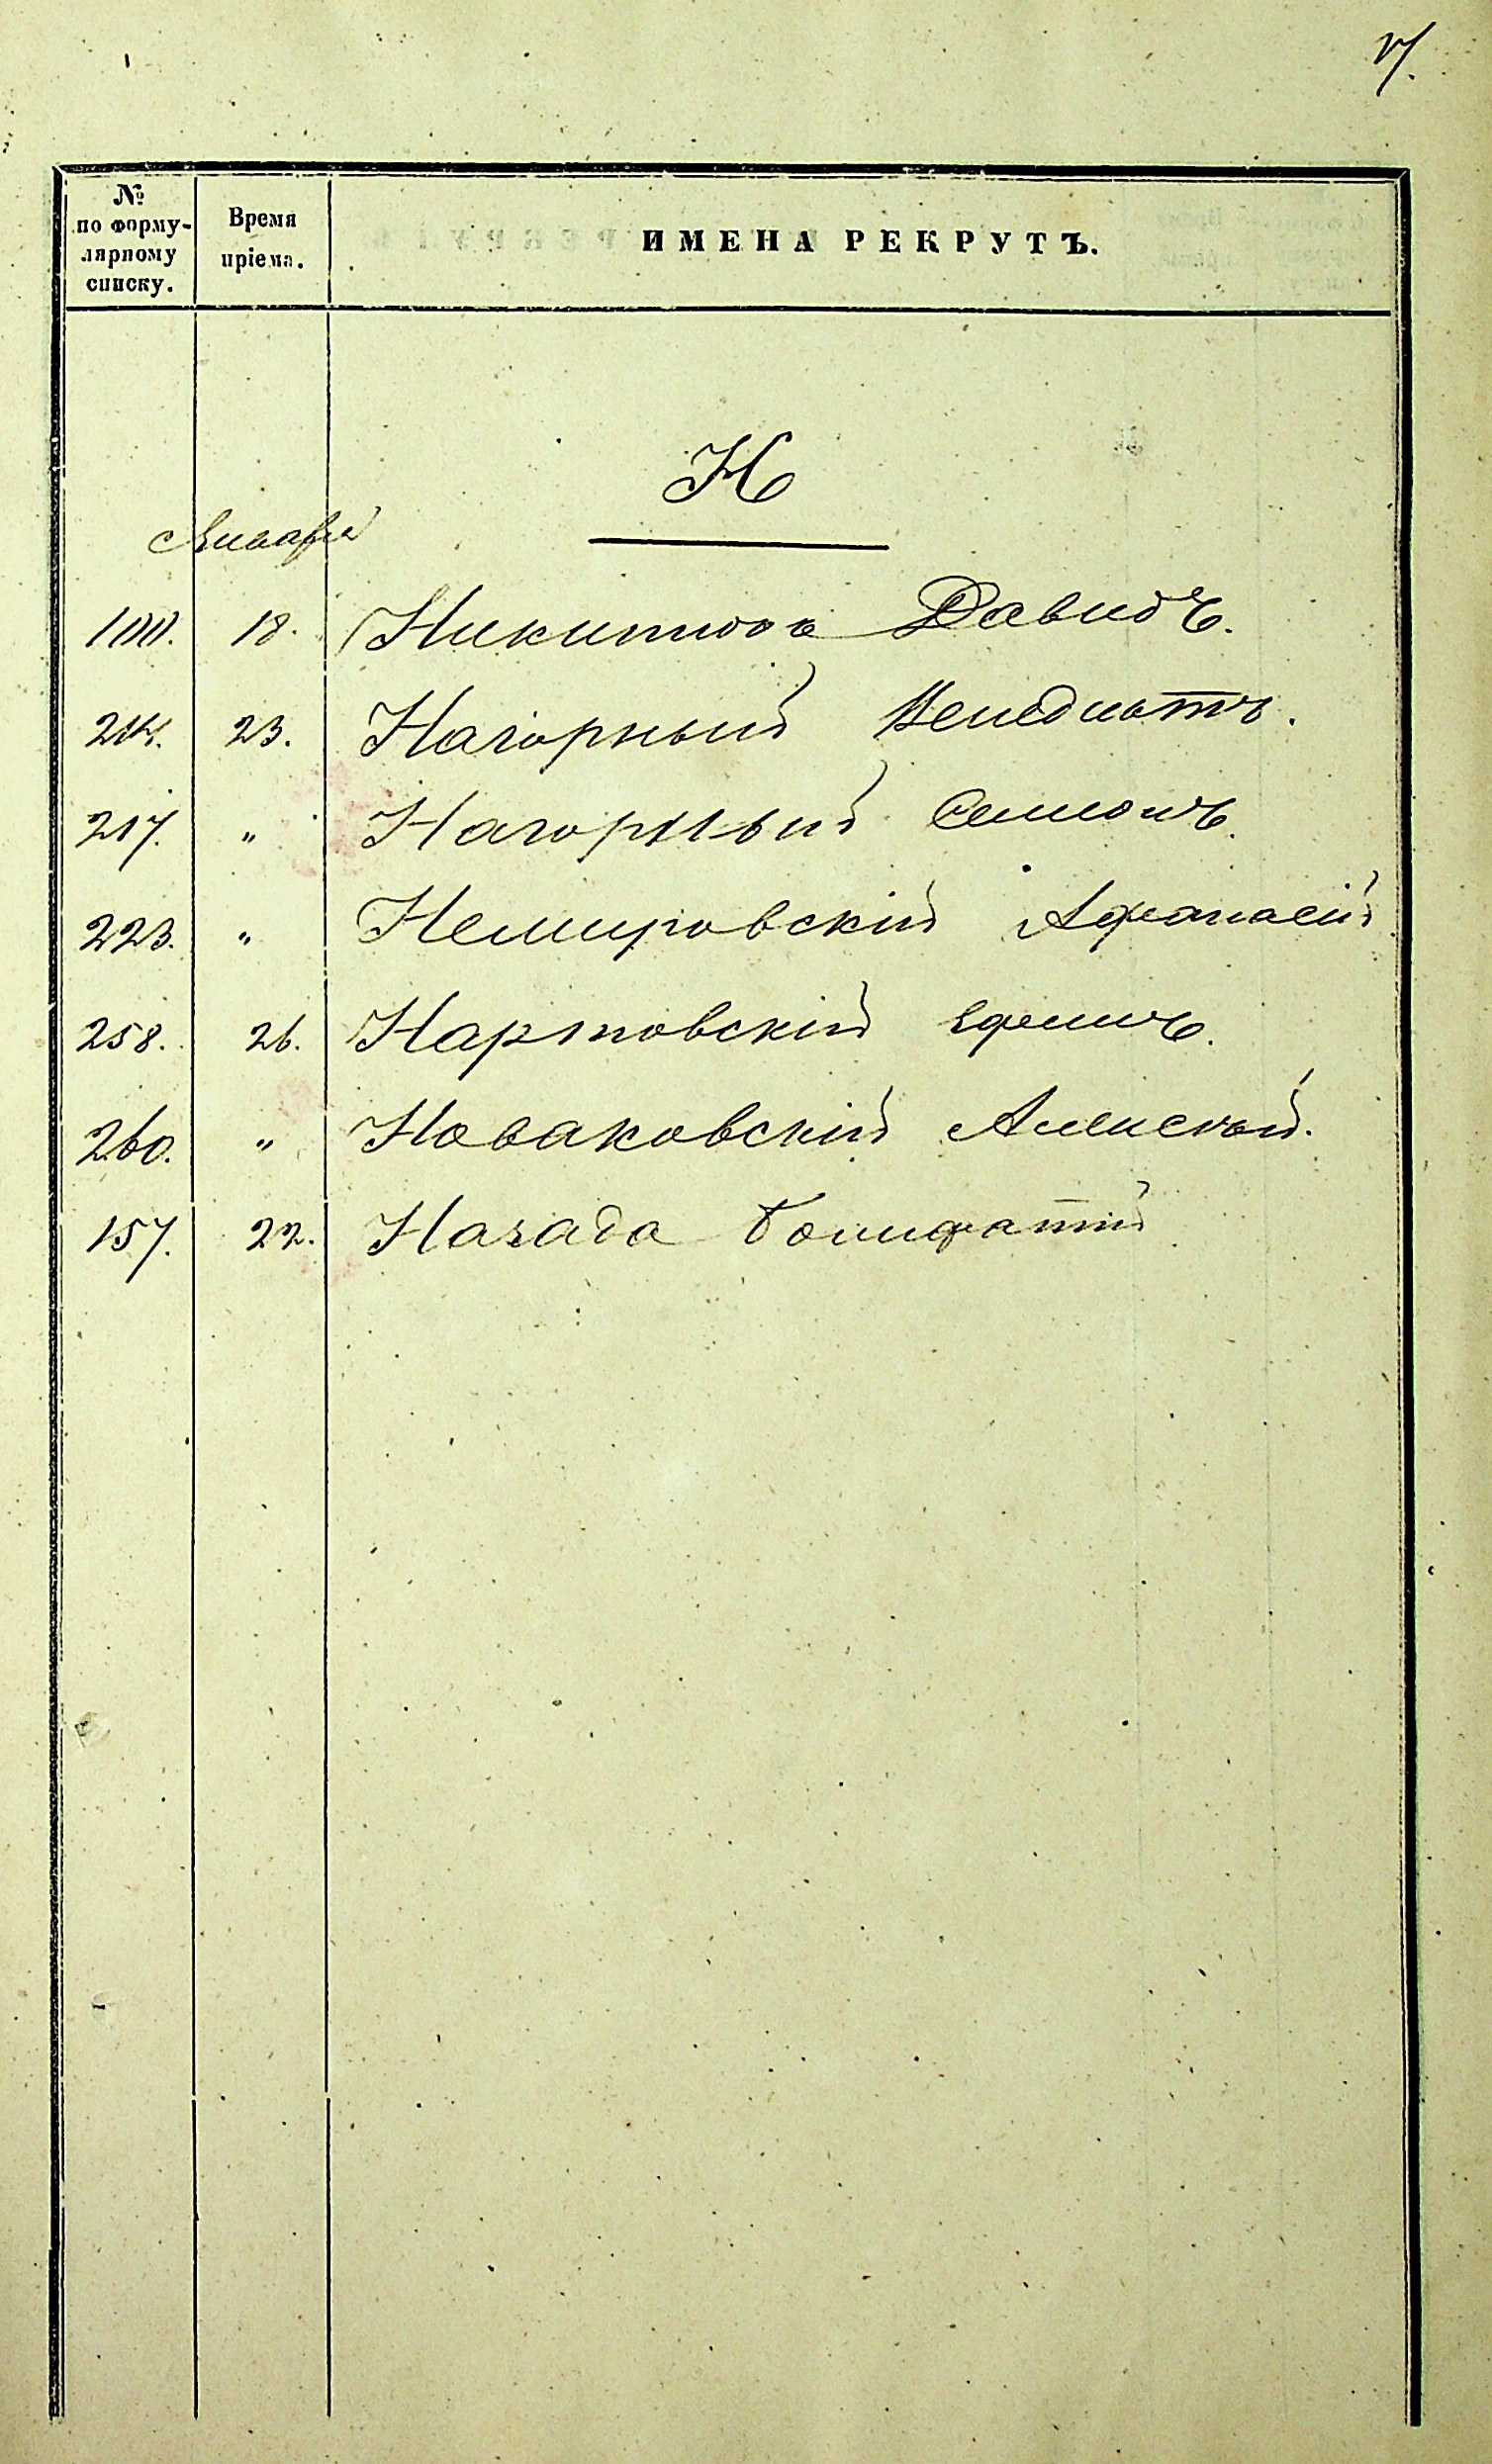 17.
№ по формулярному списку. Время пріема. ИМЕНА РЕКРУТЪ.
Н
Января
100. 18. Никитюкъ Давидъ.
214. 23. Нагорный Венедиктъ.
217. " Нагорный Семионъ.
223. " Немировскій Афанасій
258. 26. Нартовскій Ефимъ.
260. " Новаковскій Алексѣй.
157. 22. Нагада Бонифатій